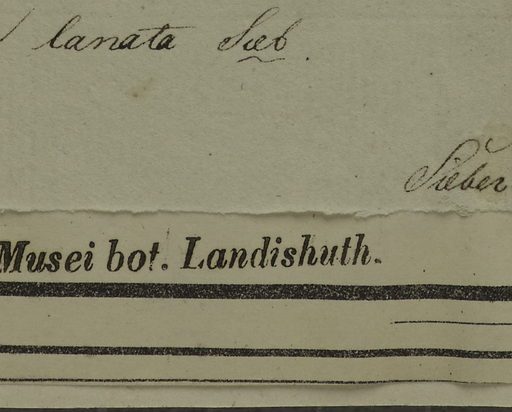 lanata Sieb.
Sieber
Musei bot. Landishuth.